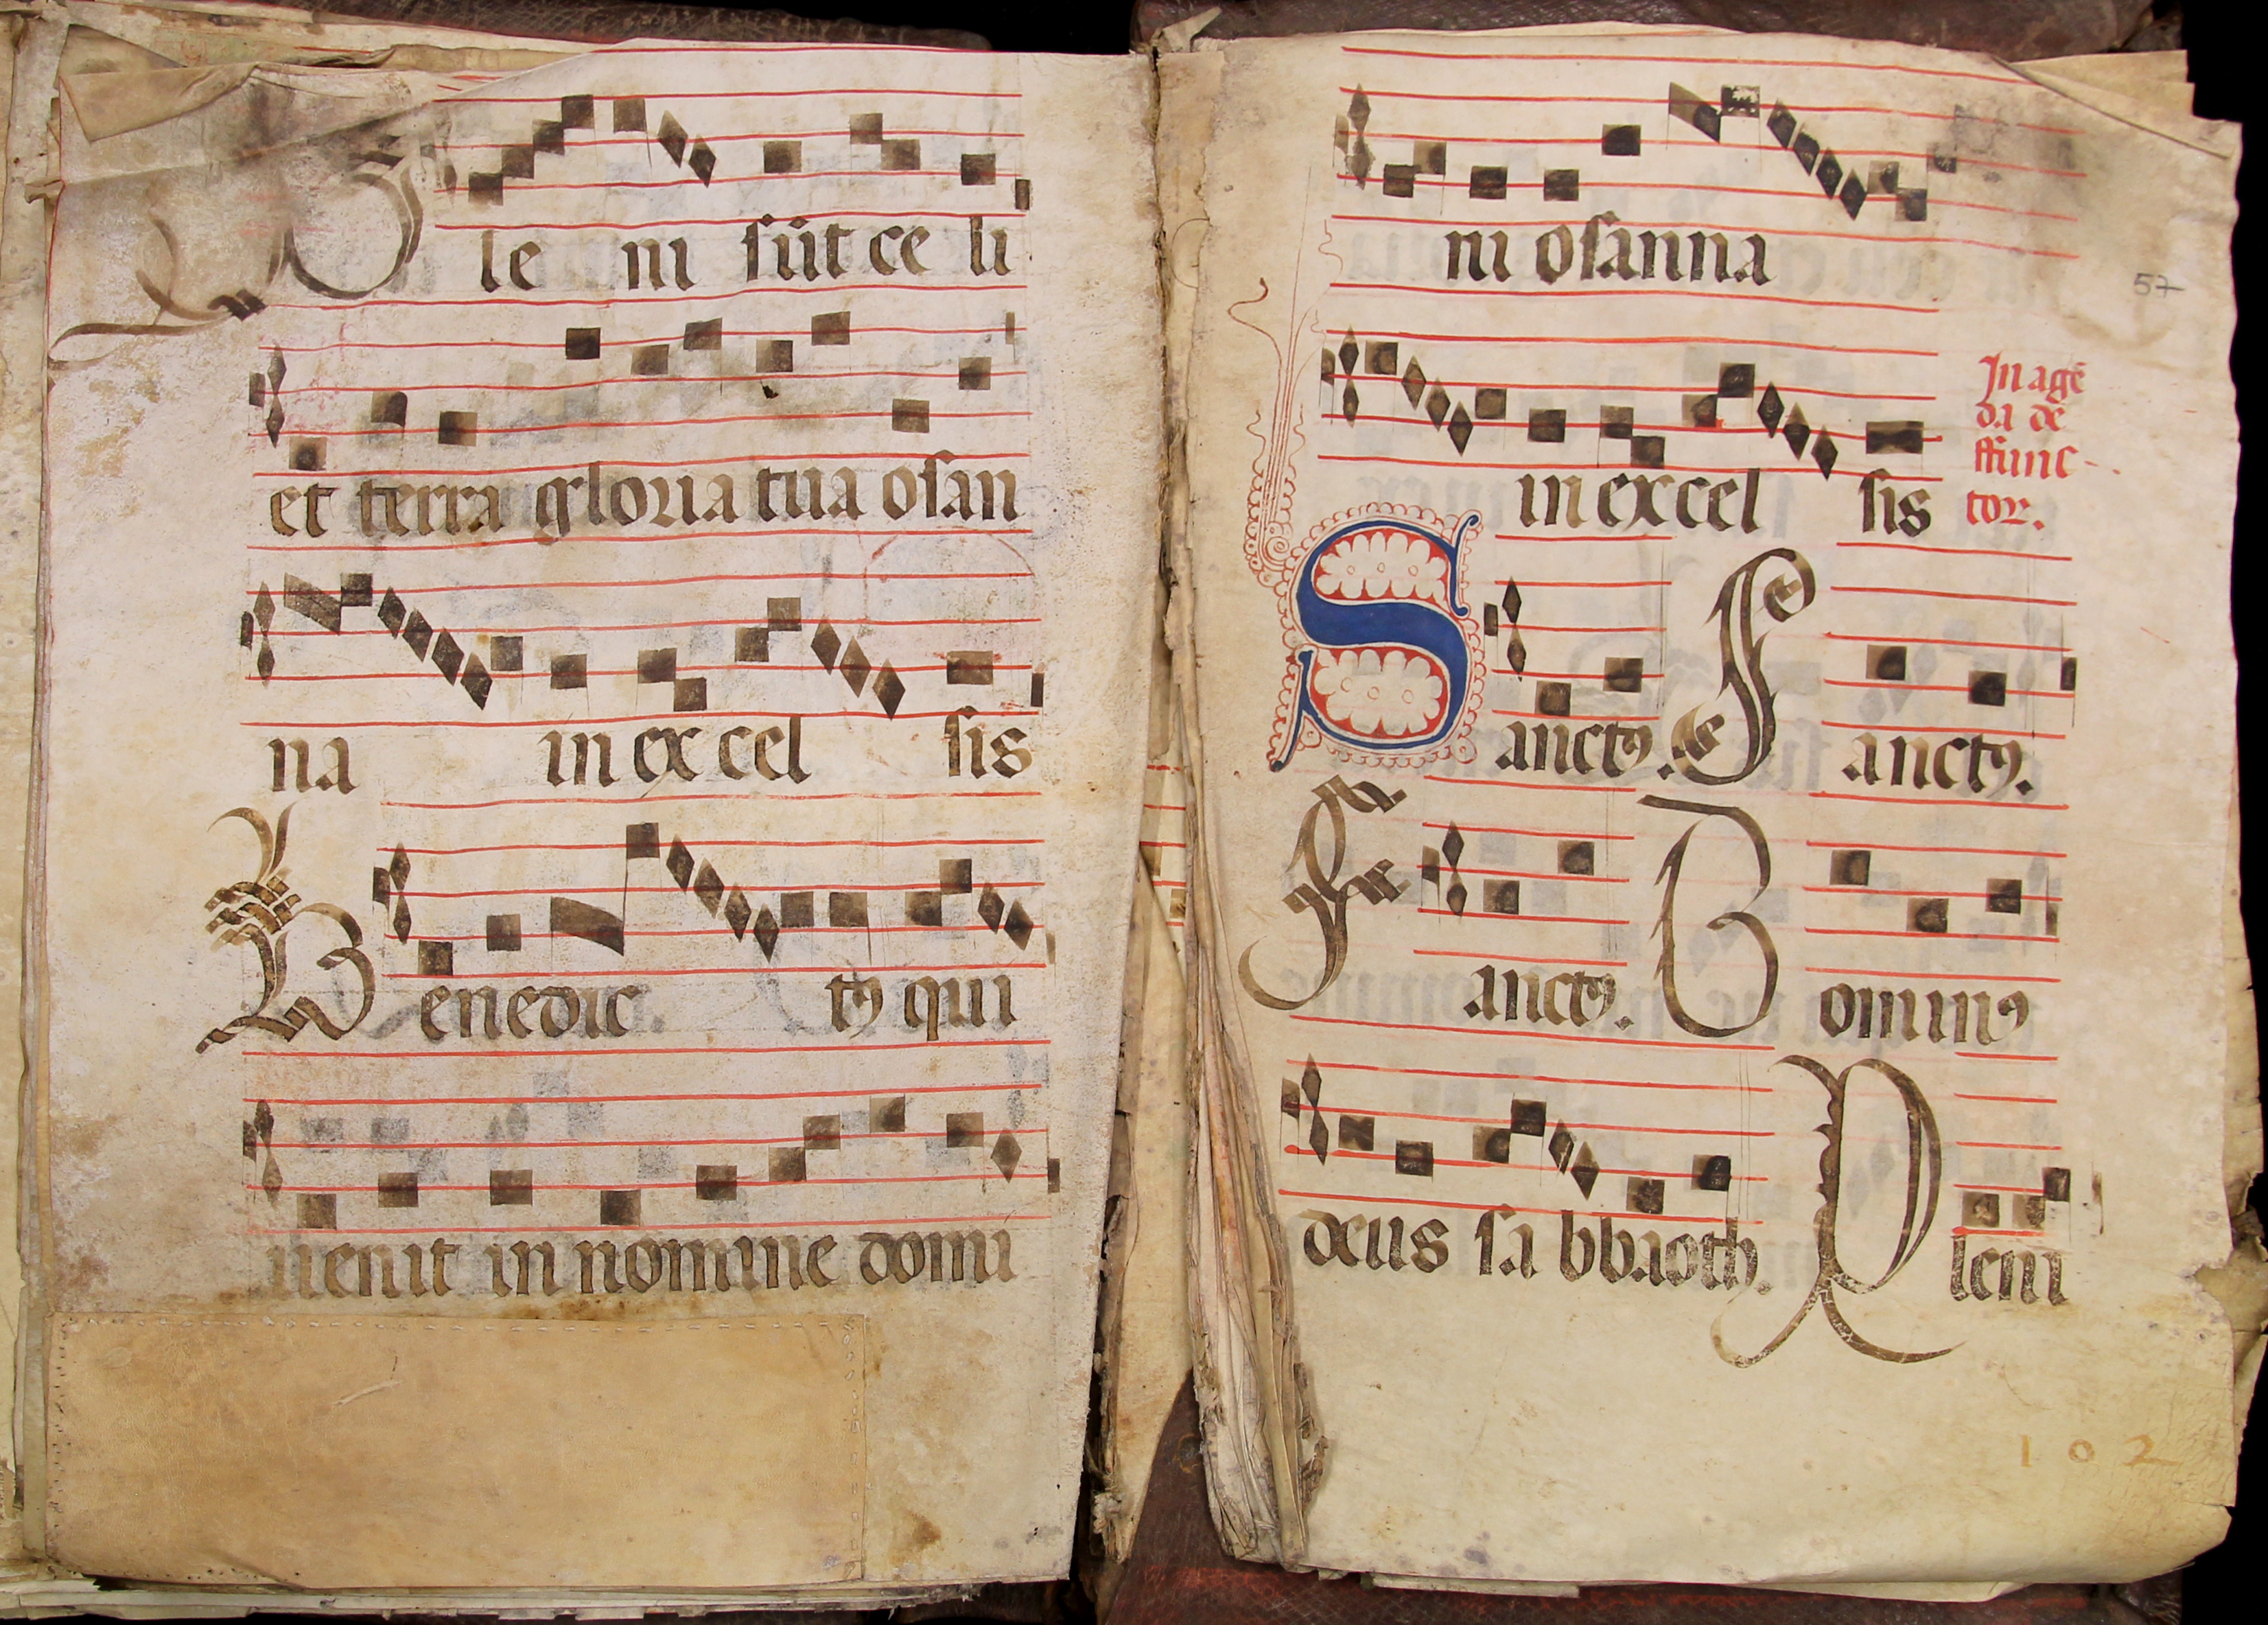 Ple ni sūt ce li
et terra gloria tua osan
na in ex cel sis
Benedic tꝰ qui
uenit in nomine domi
ni osanna
57
in ex cel sis
In agē
da de
ffunc-
tor.
Sanctꝰ. Sanctꝰ.
Sanctꝰ. Dominꝰ
deus sa bbaoth. Pleni
102